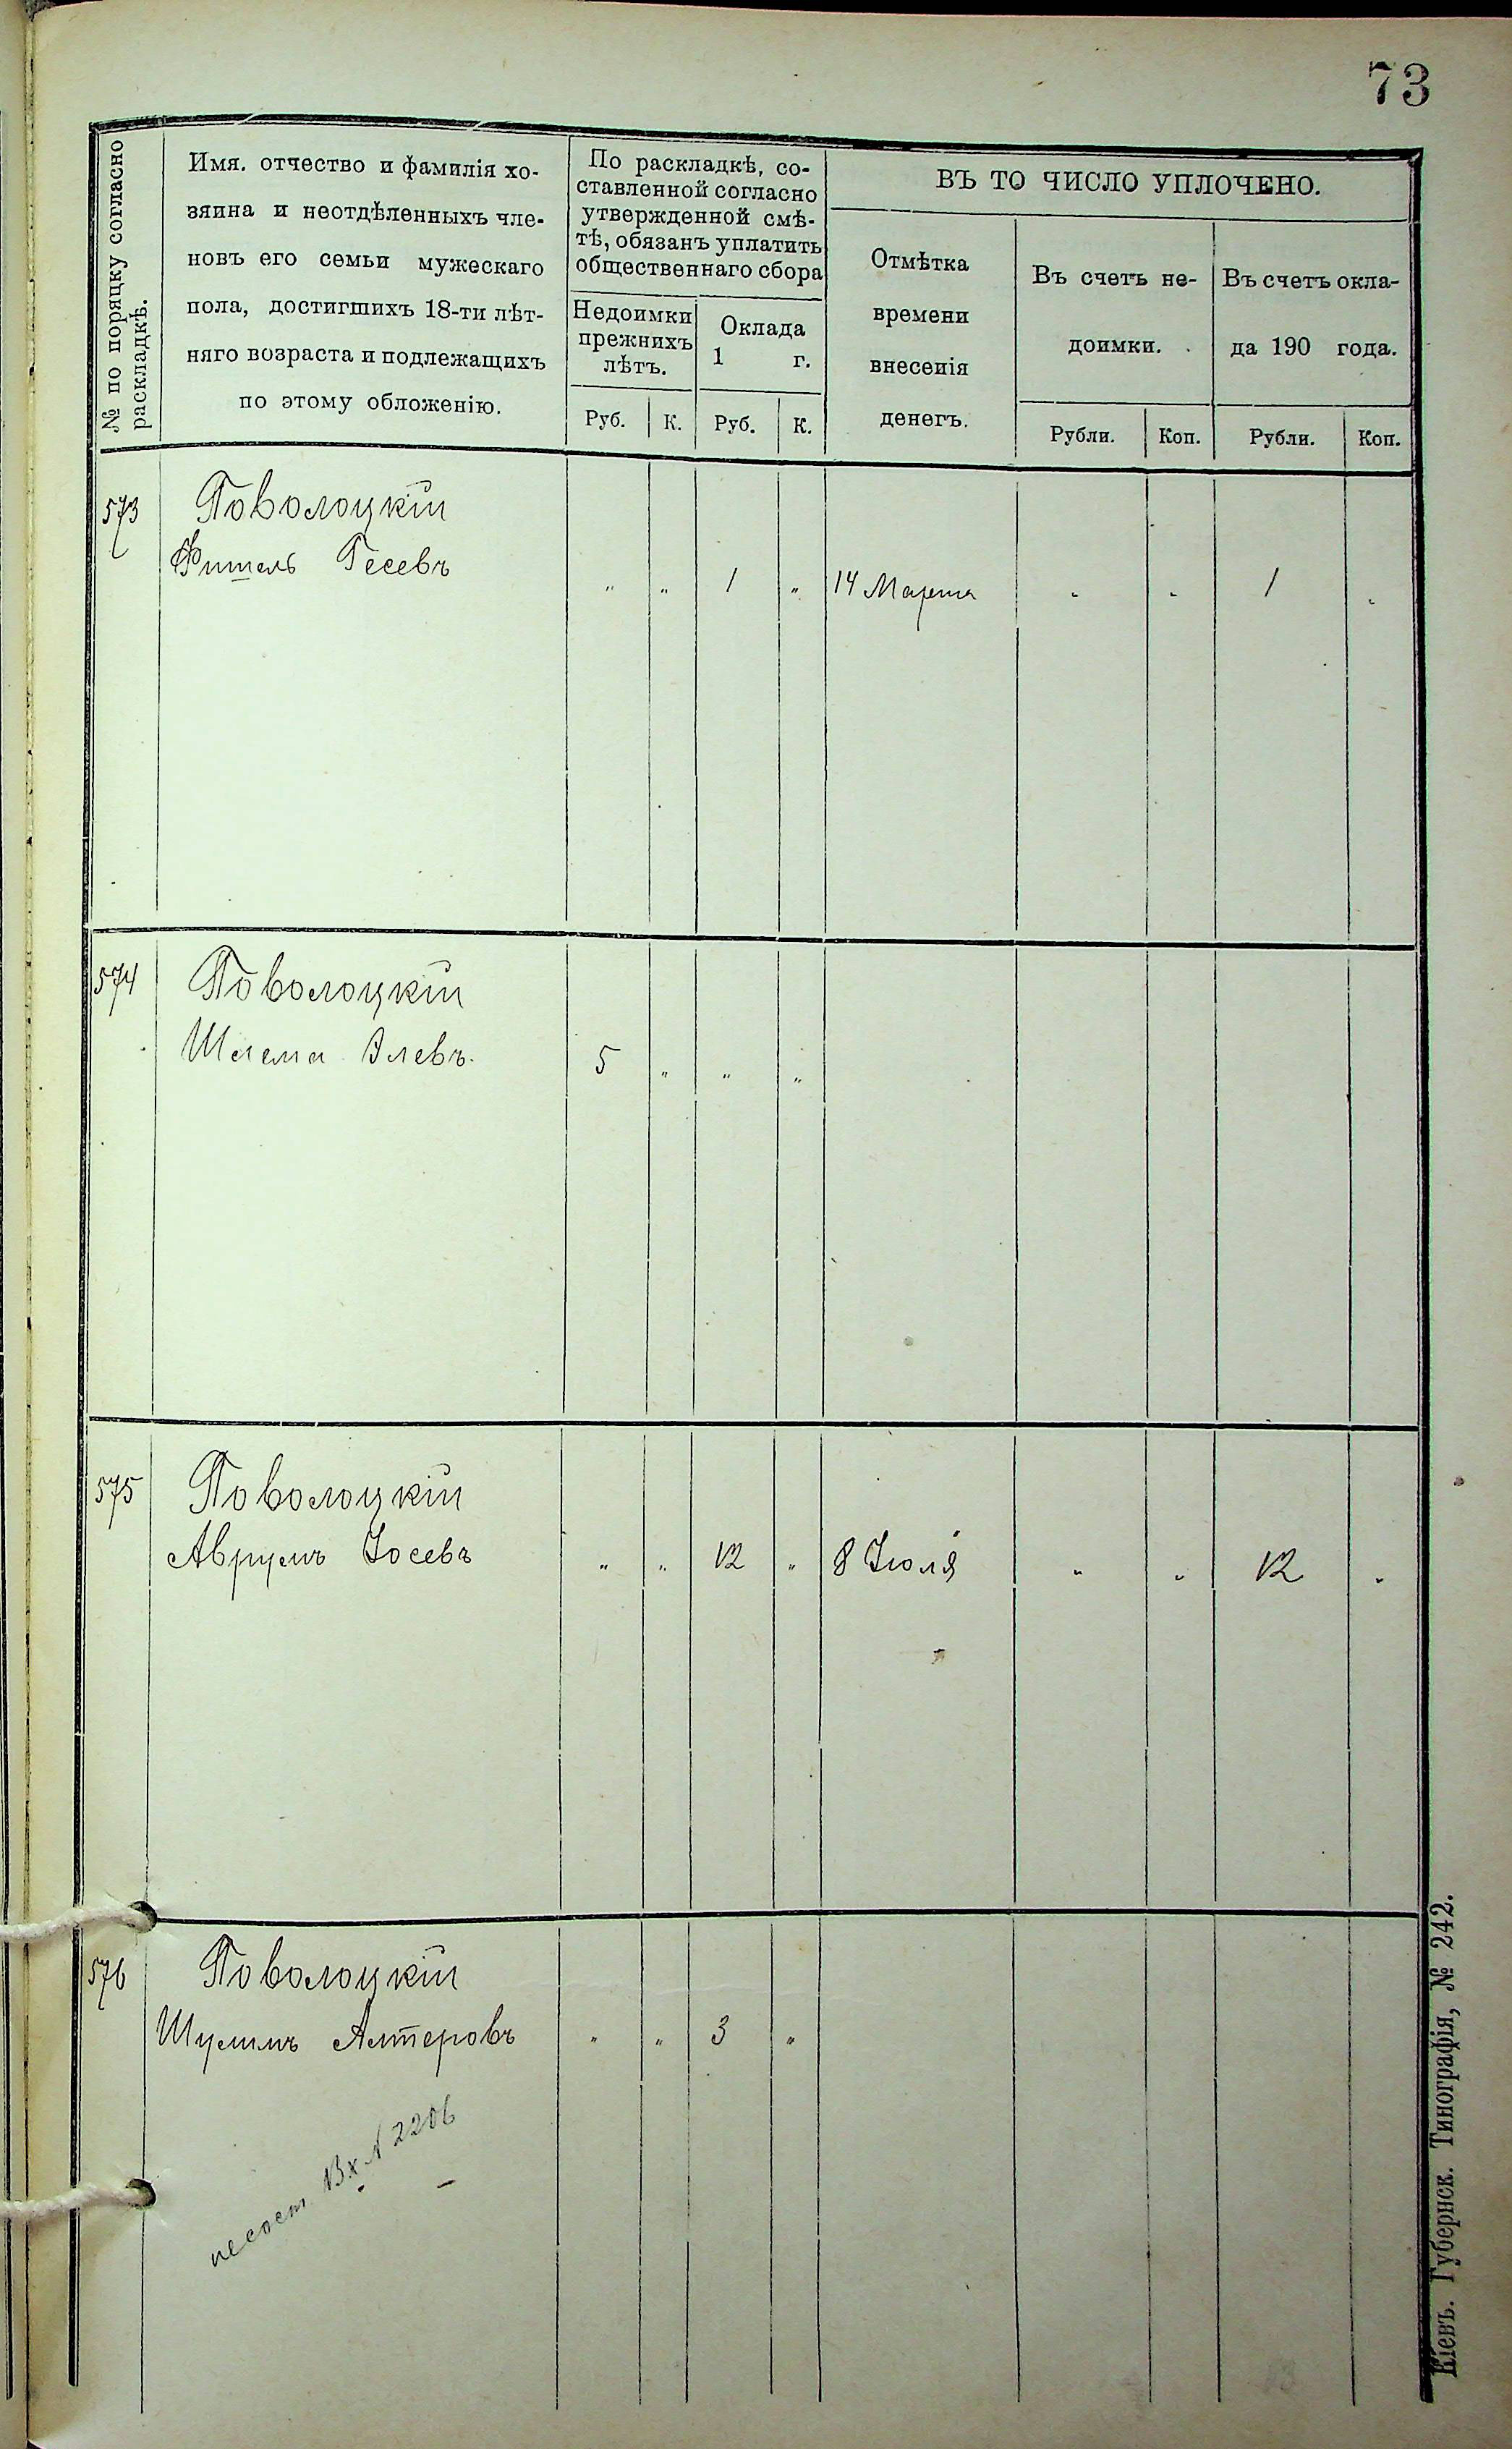 73
№ по поряцку согласно
раскладкѣ.
Имя. отчество и фамилія хо-
зяина и неотдѣленныхъ чле-
новъ его семьи мужескаго
пола, достигшихъ 18-ти лѣт-
няго возраста и подлежащихъ
по этому обложенію.
По раскладкѣ, со-
ставленной согласно
утвержденной смѣ-
тѣ, обязанъ уплатить
общественнаго сбора
Недоимки
прежнихъ
лѣтъ.
Оклада
1 г.
Руб. К. Руб. К.
ВЪ ТО ЧИСЛО УПЛОЧЕНО.
Отмѣтка
времени
внесенія
денегъ.
Въ счетъ не-
доимки.
Въ счетъ окла-
да 190 года.
Рубли. Коп. Рубли. Коп.
573 Поволоцкій
Фишель Гесевъ " " 1 " 14 Марта " " 1 "
574 Поволоцкій
Шлема Элевъ. 5 " " "
575 Поволоцкій
Аврумъ Іосевъ " " 12 " 8 Іюля " " 12 "
576 Поволоцкій
Шулимъ Алтеровъ " " 3 "
несост. Вх № 2206
Кіевъ. Губернск. Типографія, № 242.